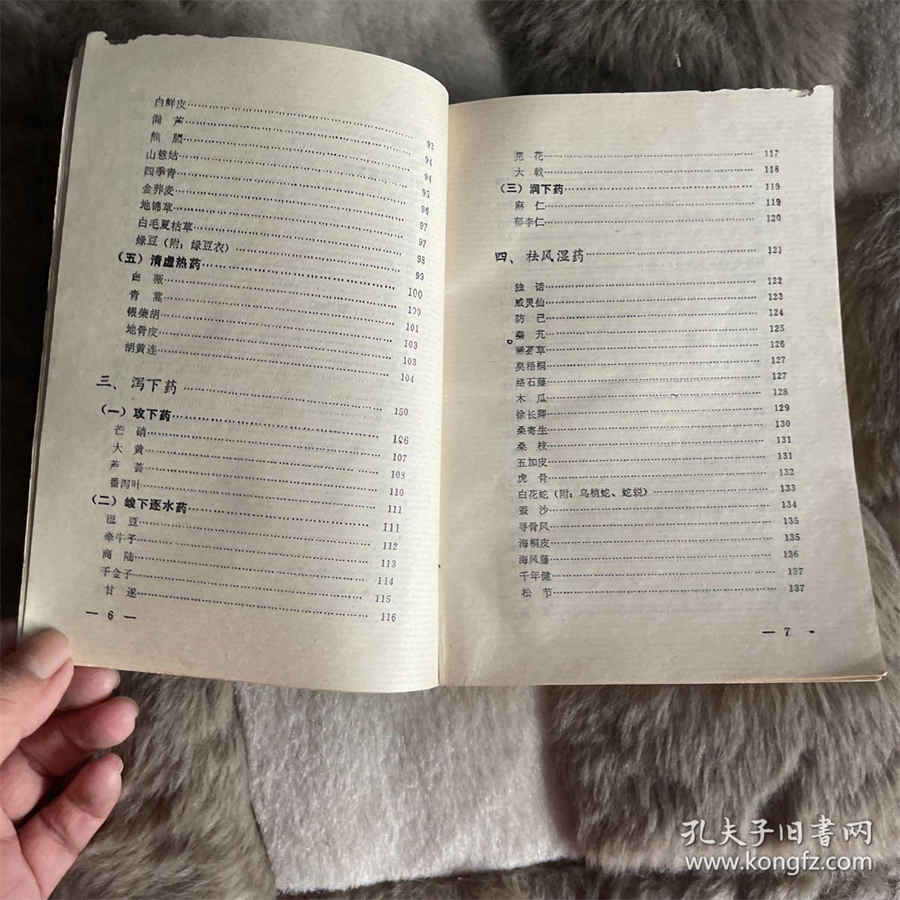 白鲜皮……93
漏芦……94
熊胆……94
山慈姑……95
四季青……95
金荞麦……96
地锦草……97
白毛夏枯草……97
绿豆（附：绿豆衣）……98
（五）清虚热药……99
白薇……100
青蒿……100
银柴胡……101
地骨皮……103
胡黄连……103
……104
三、泻下药……150
（一）攻下药……106
芒硝……107
大黄……108
芦荟……110
番泻叶……111
（二）峻下逐水药……111
巴豆……112
牵牛子……113
商陆……114
千金子……115
甘遂……116
— 6 —
芫花……117
大戟……118
（三）润下药……119
麻仁……119
郁李仁……120
四、祛风湿药……121
独活……122
威灵仙……123
防己……124
秦艽……125
豨莶草……126
臭梧桐……127
络石藤……127
木瓜……128
徐长卿……129
桑寄生……130
桑枝……131
五加皮……131
虎骨……132
白花蛇（附：乌梢蛇、蛇蜕）……133
蚕沙……134
寻骨风……135
海桐皮……135
海风藤……136
千年健……137
松节……137
— 7
孔夫子旧书网
www.kongfz.com